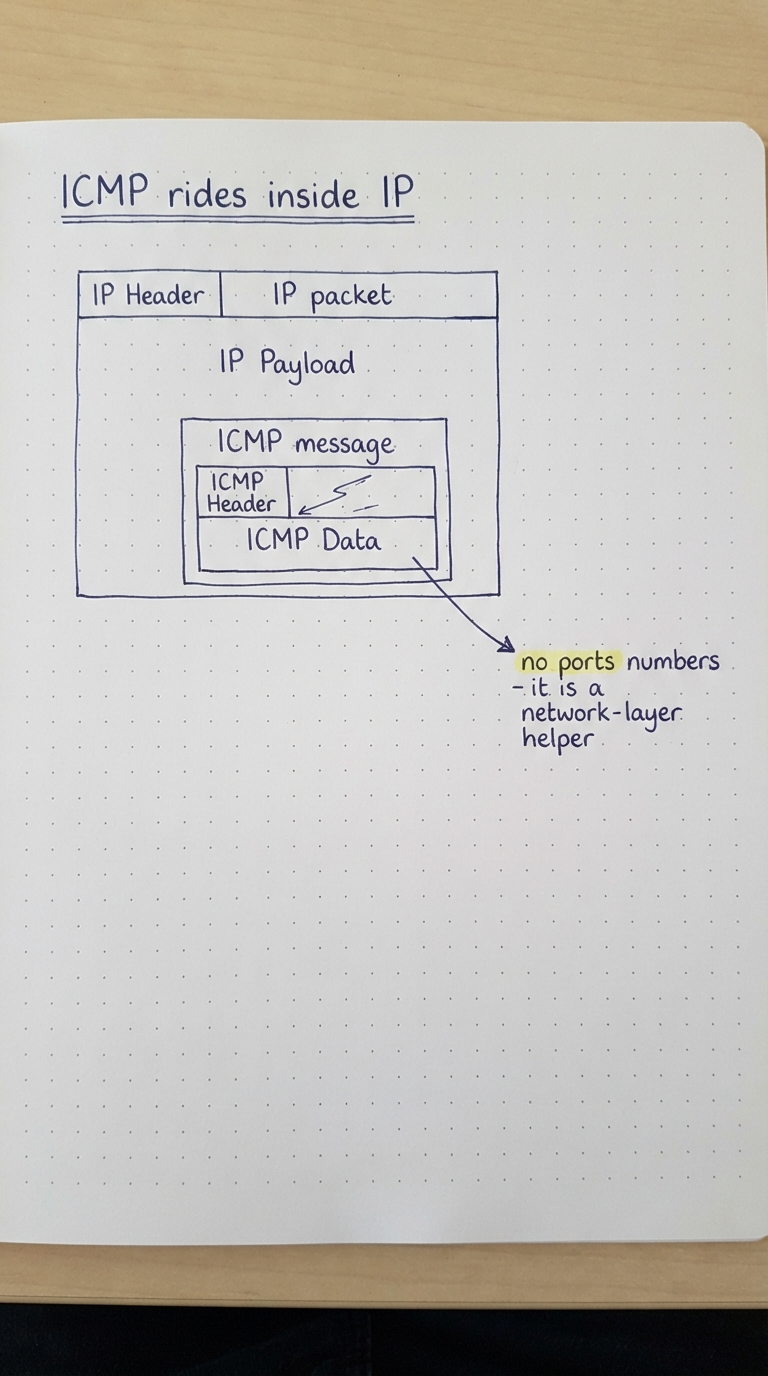 ICMP rides inside IP
IP Header
IP packet
IP Payload
ICMP message
ICMP
Header
ICMP Data
no ports numbers
- it is a
network-layer
helper